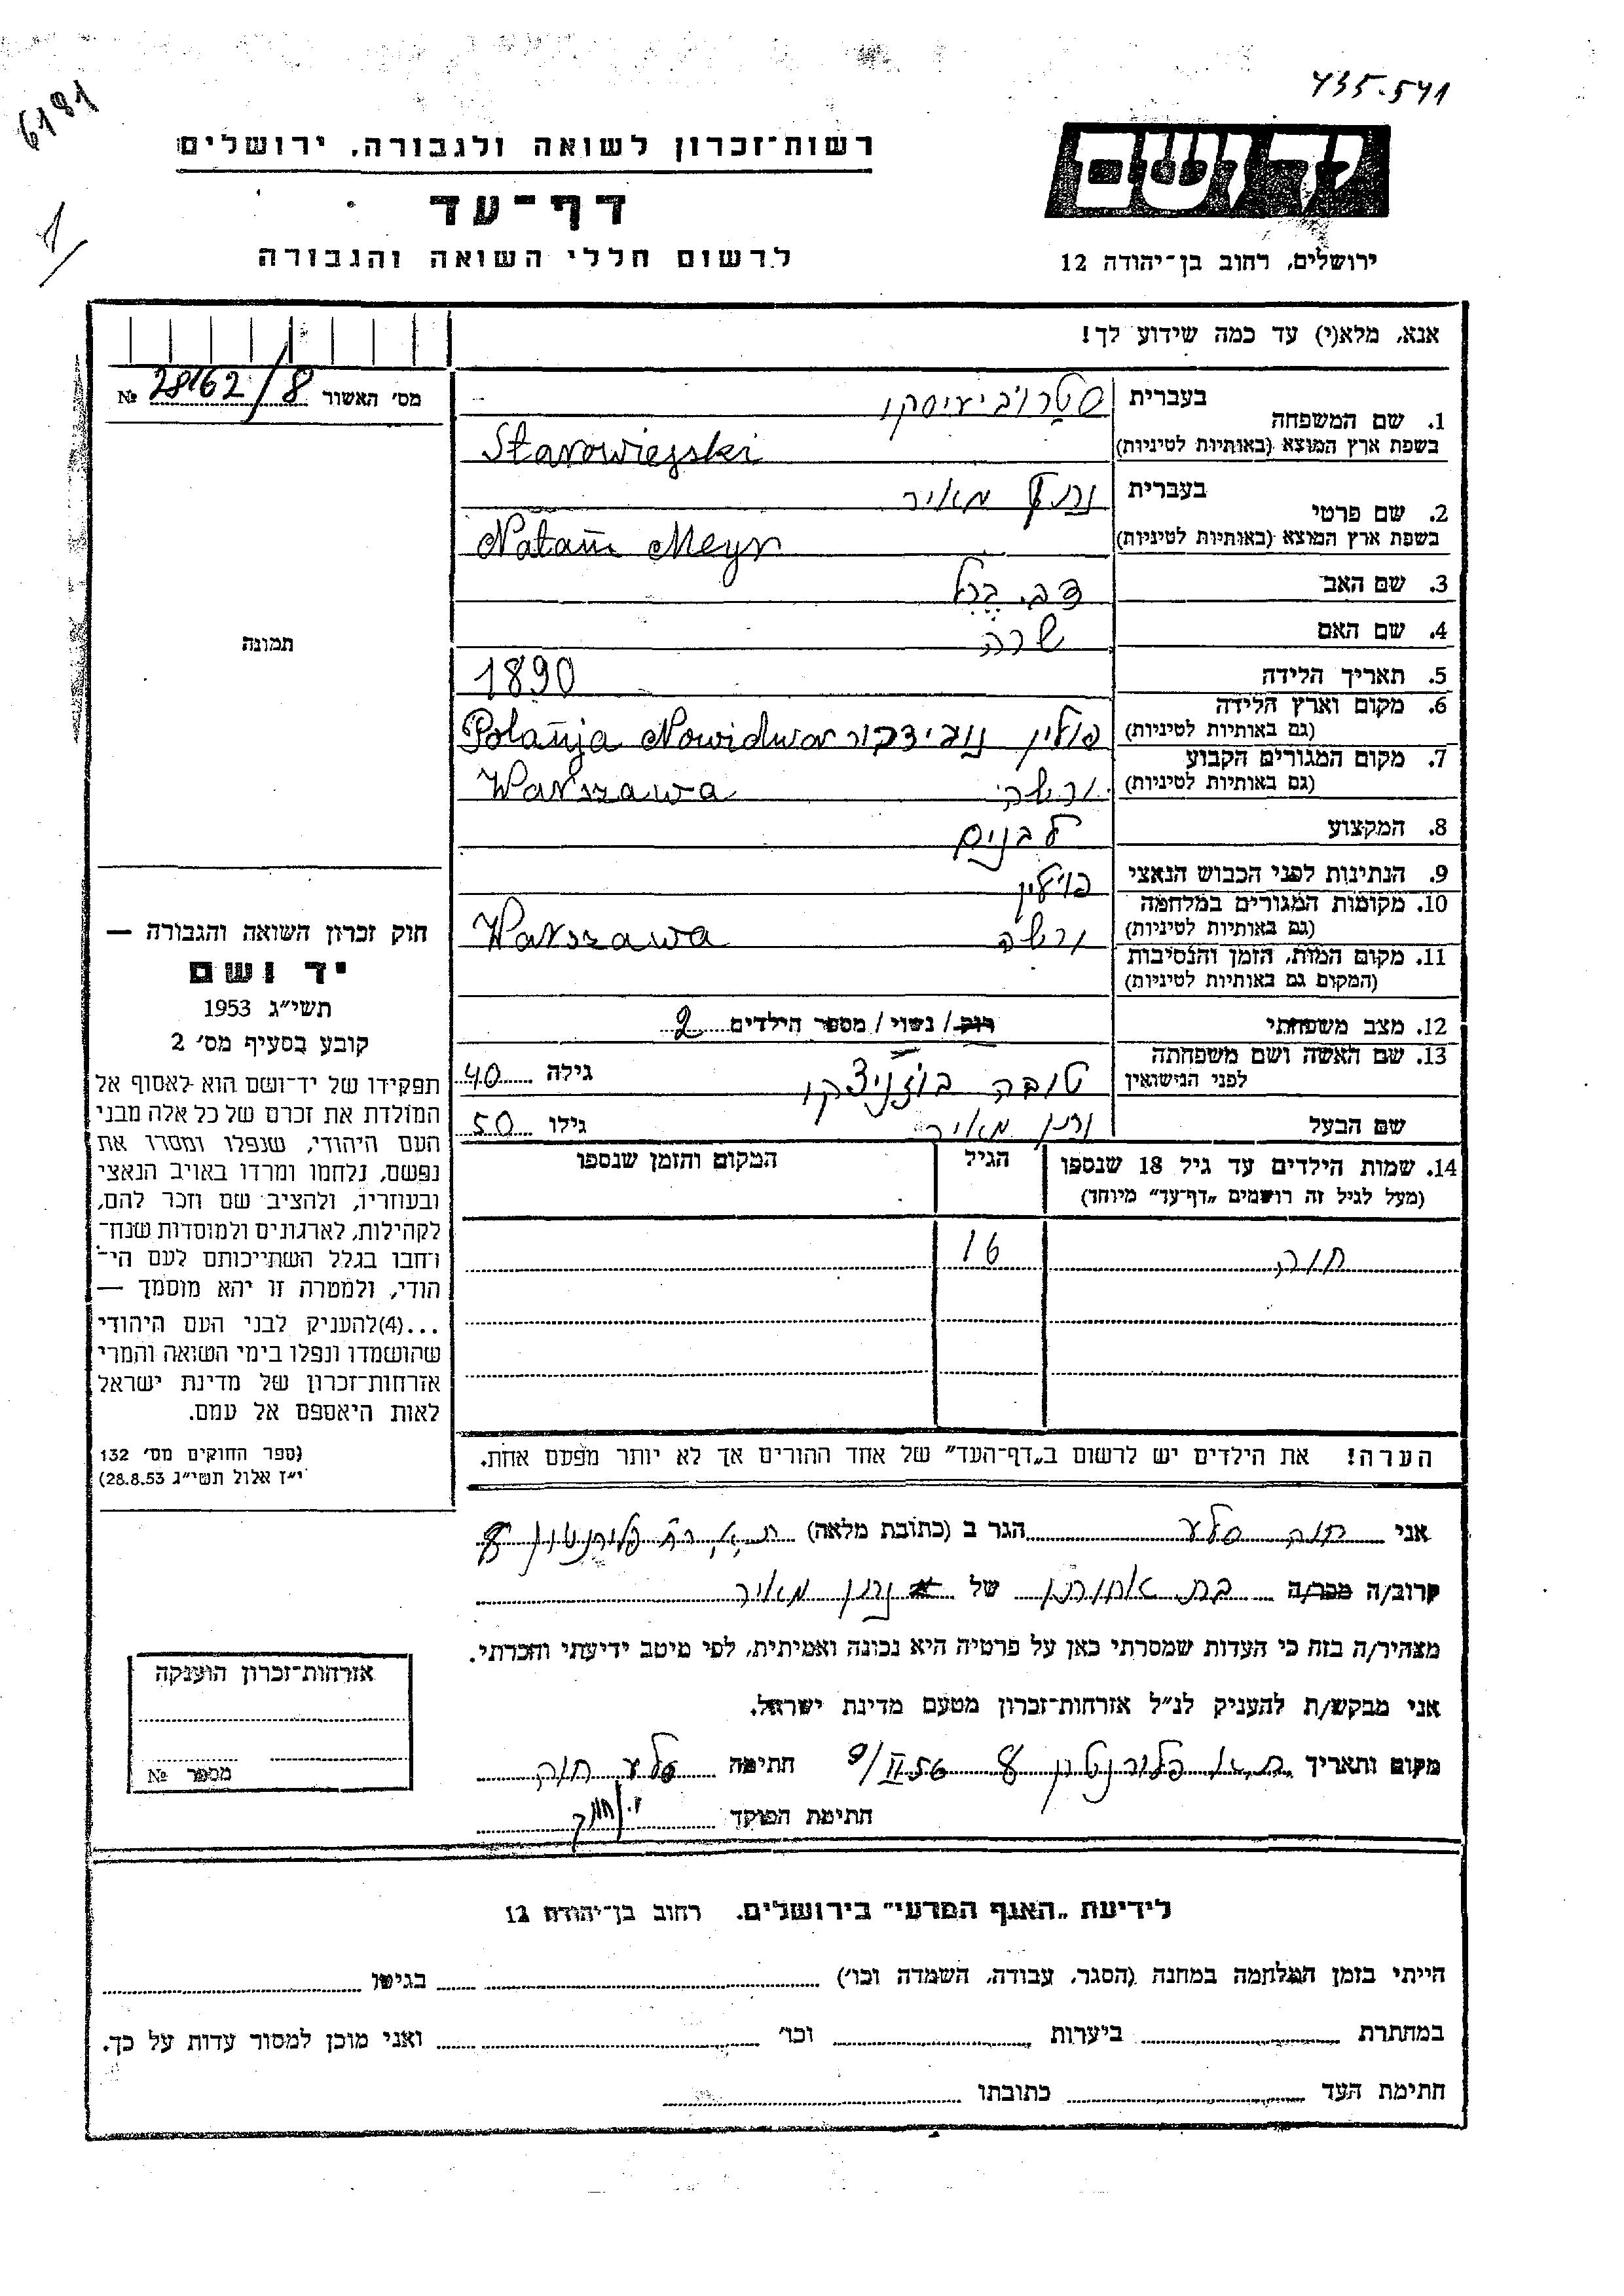 6181
435.541
רשות־זכרון לשואה ולגבורה, ירושלים
יד ושם
דף־עד
לרשום חללי השואה והגבורה
ירושלים, רחוב בן־יהודה 12
1
אנא, מלא(י) עד כמה שידוע לך!
מס' האשור 28162/8 №
1. שם המשפחה בעברית סטרוביעיסקי
בשפת ארץ המוצא (באותיות לטיניות) Starowiejski
2. שם פרטי בעברית נתן מאיר
בשפת ארץ המוצא (באותיות לטיניות) Natan Meyr
3. שם האב דב, ברל
4. שם האם שרה
תמונה
5. תאריך הלידה 1890
6. מקום וארץ הלידה
(גם באותיות לטיניות) פולין נובידבור Polanja Nowidwor
7. מקום המגורים הקבוע
(גם באותיות לטיניות) ורשה Warszawa
8. המקצוע לבנים
9. הנתינות לפני הכבוש הנאצי פוילין
10. מקומות המגורים במלחמה
(גם באותיות לטיניות) ורשה Warszawa
11. מקום המות, הזמן והנסיבות
(המקום גם באותיות לטיניות)
12. מצב משפחתי רווק / נשוי / מספר הילדים 2
13. שם האשה ושם משפחתה
לפני הנישואין טובה גילה 40
שם הבעל נתן מאיר גילו 50
14. שמות הילדים עד גיל 18 שנספו הגיל המקום והזמן שנספו
(מעל לגיל זה רושמים „דף־עד” מיוחד)
חוה 16
הערה! את הילדים יש לרשום ב„דף־העד” של אחד ההורים אך לא יותר מפעם אחת.
חוק זכרון השואה והגבורה —
יד ושם
תשי״ג 1953
קובע בסעיף מס' 2
תפקידו של יד־ושם הוא לאסוף אל
המולדת את זכרם של כל אלה מבני
העם היהודי, שנפלו ומסרו את
נפשם, נלחמו ומרדו באויב הנאצי
ובעוזריו, ולהציב שם וזכר להם,
לקהילות, לארגונים ולמוסדות שנח־
רחבו בגלל השתייכותם לעם הי־
הודי, ולמטרה זו יהא מוסמך —
...(4)להעניק לבני העם היהודי
שהושמדו ונפלו בימי השואה והמרי
אזרחות־זכרון של מדינת ישראל
לאות היאספם אל עמם.
(ספר החוקים מס' 132
י״ז אלול תשי״ג 28.8.53)
אני חוה סלע הגר ב (כתובת מלאה) ת.א. רח פלורנטין
קרוב/ה מכר/ה בת אחותו של נתן מאיר
מצהיר/ה בזה כי העדות שמסרתי כאן על פרטיה היא נכונה ואמיתית, לפי מיטב ידיעתי והכרתי.
אני מבקש/ת להעניק לנ״ל אזרחות־זכרון מטעם מדינת ישראל.
מקום ותאריך ת.א. פלורנטין 9/II 56 חתימה סלע חוה
חתימת הפוקד
אזרחות־זכרון הוענקה
מספר №
לידיעת „האגף המדעי” בירושלים. רחוב בן־יהודה 12
הייתי בזמן המלחמה במחנה (הסגר, עבודה, השמדה וכו') בגיטו
במחתרת ביערות וכו' ואני מוכן למסור עדות על כך.
חתימת העד כתובתו